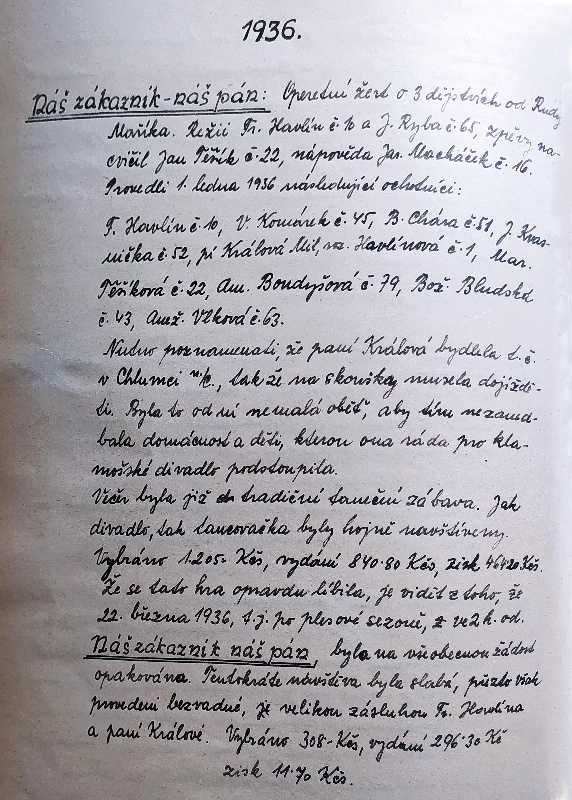 1936.
Náš zákazník - náš pán: Operetní žert o 3 dějstvích od Rudy
Maříka. Režii Fr. Havlín č 10 a J. Ryba č 65, zpěvy na-
cvičil Jan Těšík č. 22, nápověda Jar. Macháček č. 16.
Provedli 1. ledna 1936 následující ochotníci:
F. Havlín č 10, V. Komárek č. 45, B. Chára č. 51, J. Kvas-
nička č. 52, pí Králová Mil, roz. Havlínová č. 1, Mar.
Těšíková č. 22, Am. Bondyšová č. 79, Bož. Bludská
č. 43, Anež. Vlková č. 63.
Nutno poznamenati, že paní Králová bydlela t. č.
v Chlumci n/c., tak že na skoušky musela dojíždě-
ti. Byla to od ní nemalá oběť, aby tím nezaned-
bala domácnost a děti, kterou ona ráda pro kla-
mošské divadlo podstoupila.
Večer byla již tradiční taneční zábava. Jak
divadlo, tak tancovačka byly hojně navštíveny.
Vybráno 1.205- Kčs, vydání 840·80 Kčs, zisk 464·20 Kčs.
Že se tato hra opravdu líbila, je vidit z toho, že
22. března 1936, t. j. po plesové sezoně, z ve 2 h. od.
Náš zákazník náš pán, byla na všeobecnou žádost
opakována. Tentokráte návštěva byla slabá, přesto však
provedení bezvadné, je velikou zásluhou Fr. Havlína
a paní Králové. Vybráno 308- Kčs, vydání 296·30 Kč
zisk 11·70 Kčs.